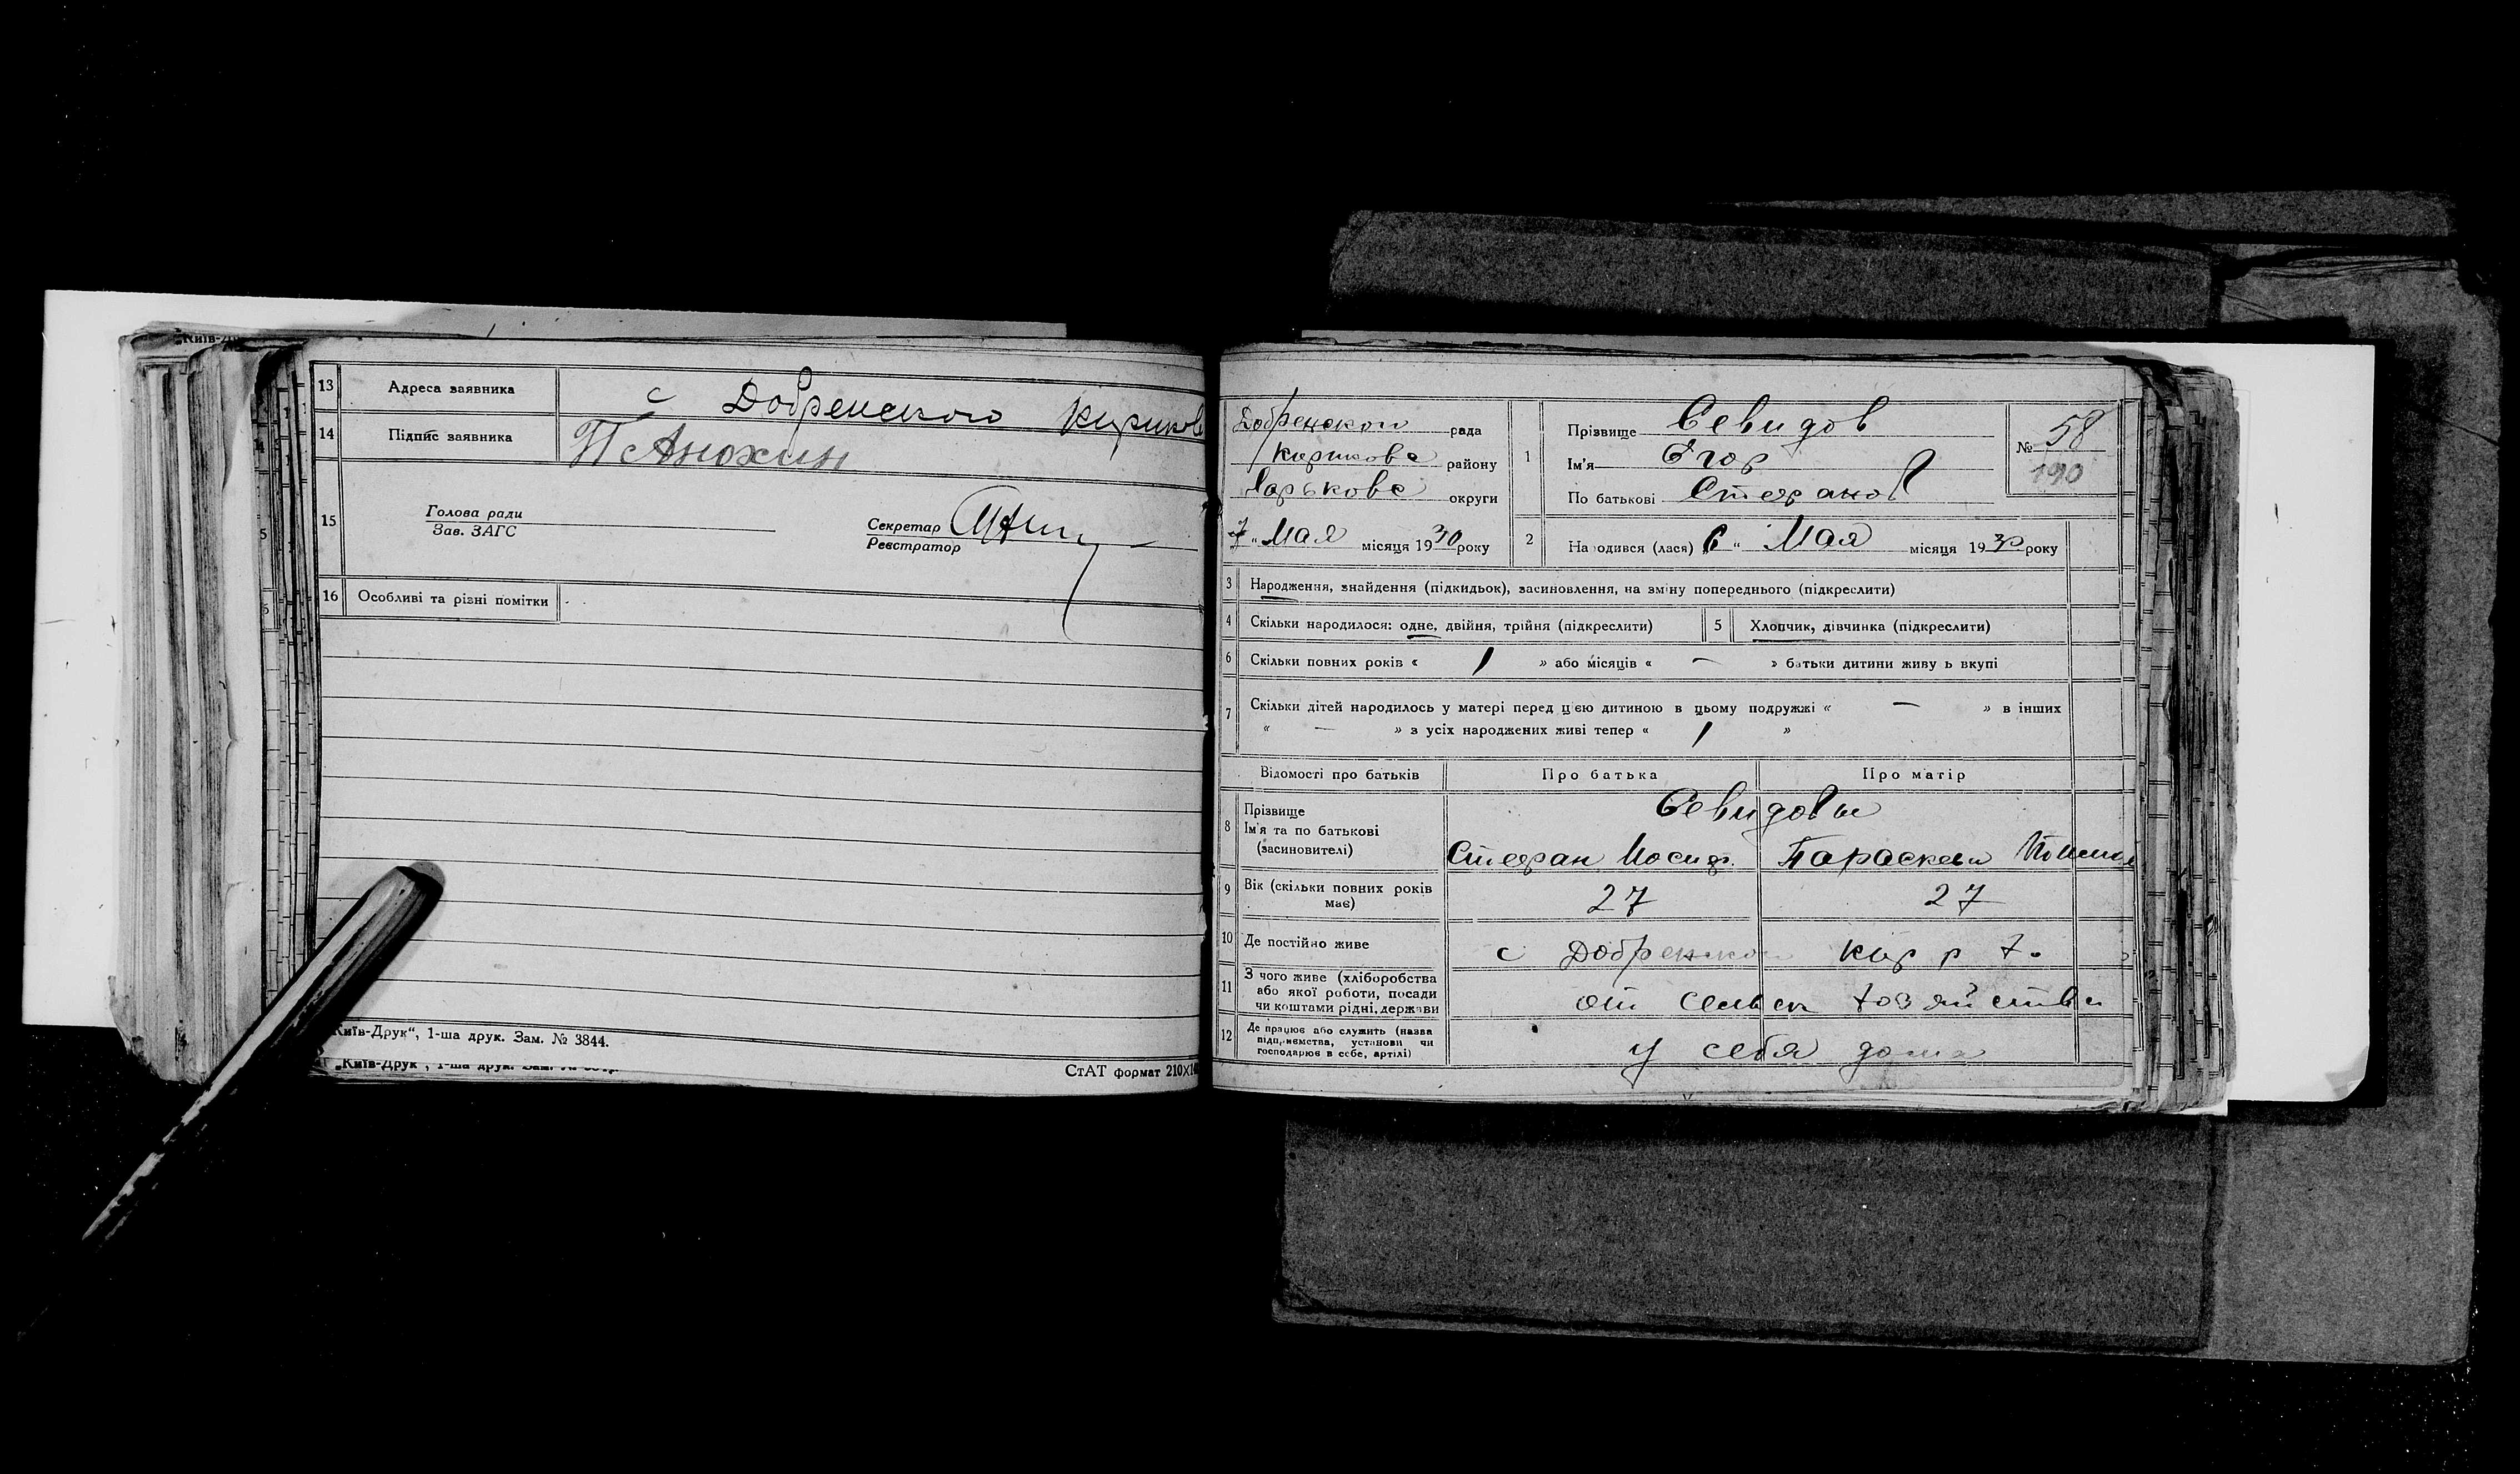 „Київ-Др
13 Адреса заявника с Добренского Кириков
14 Підпис заявника П Анохин
15 Голова ради
Зав. ЗАГС
Секретар
Реєстратор
16 Особливі та різні помітки
Київ-Друк“, 1-ша друк. Зам. № 3844.
„Київ-Друк“, 1-ша друк. Зам.
СтАТ формат 210×1
Добренской рада
района Харькове округи
7 „ Мая місяця 1930 року
1 Прізвище Севидов
Ім'я Егор
По батькові Стефанов
№ 58
190
2 Народився (лася) 6 “ Мая місяця 1930 року
3 Народження, знайдення (підкидьок), засиновлення, на зміну попереднього (підкреслити)
4 Скільки народилося: одне, двійня, трійня (підкреслити) 5 Хлопчик, дівчинка (підкреслити)
6 Скільки повних років « 1 » або місяців « — » батьки дитини живуть вкупі
7 Скільки дітей народилось у матері перед цією дитиною в цьому подружжі « — » в інших
« — » з усіх народжених живі тепер « 1 »
Відомості про батьків Про батька Про матір
8 Прізвище
Ім'я та по батькові
(засиновителі)
Севидовы
Стефан Иосиф. Параскеви
9 Вік (скільки повних років
має) 27 27
10 Де постійно живе с Добренско Кир р х.
11 З чого живе (хліборобства
або якої роботи, посади
чи коштами рідні, держави
от сельск хозяйства
12 Де працює або служить (назва
підприємства, установи чи
господарює в себе, артілі)
у себя дома